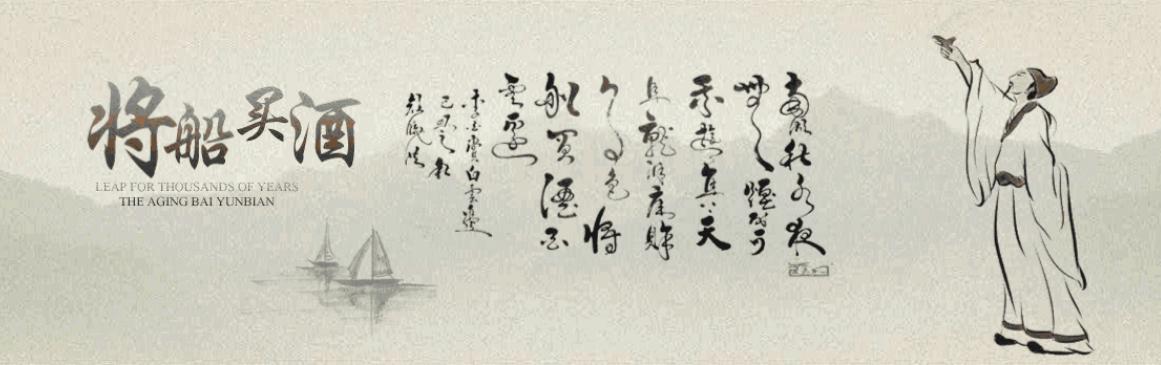 将船买酒
LEAP FOR THOUSANDS OF YEARS
THE AGING BAI YUNBIAN
南湖秋水夜
無煙耐可
乘流直上天
且就洞庭賒
月色將
船買酒白
雲邊